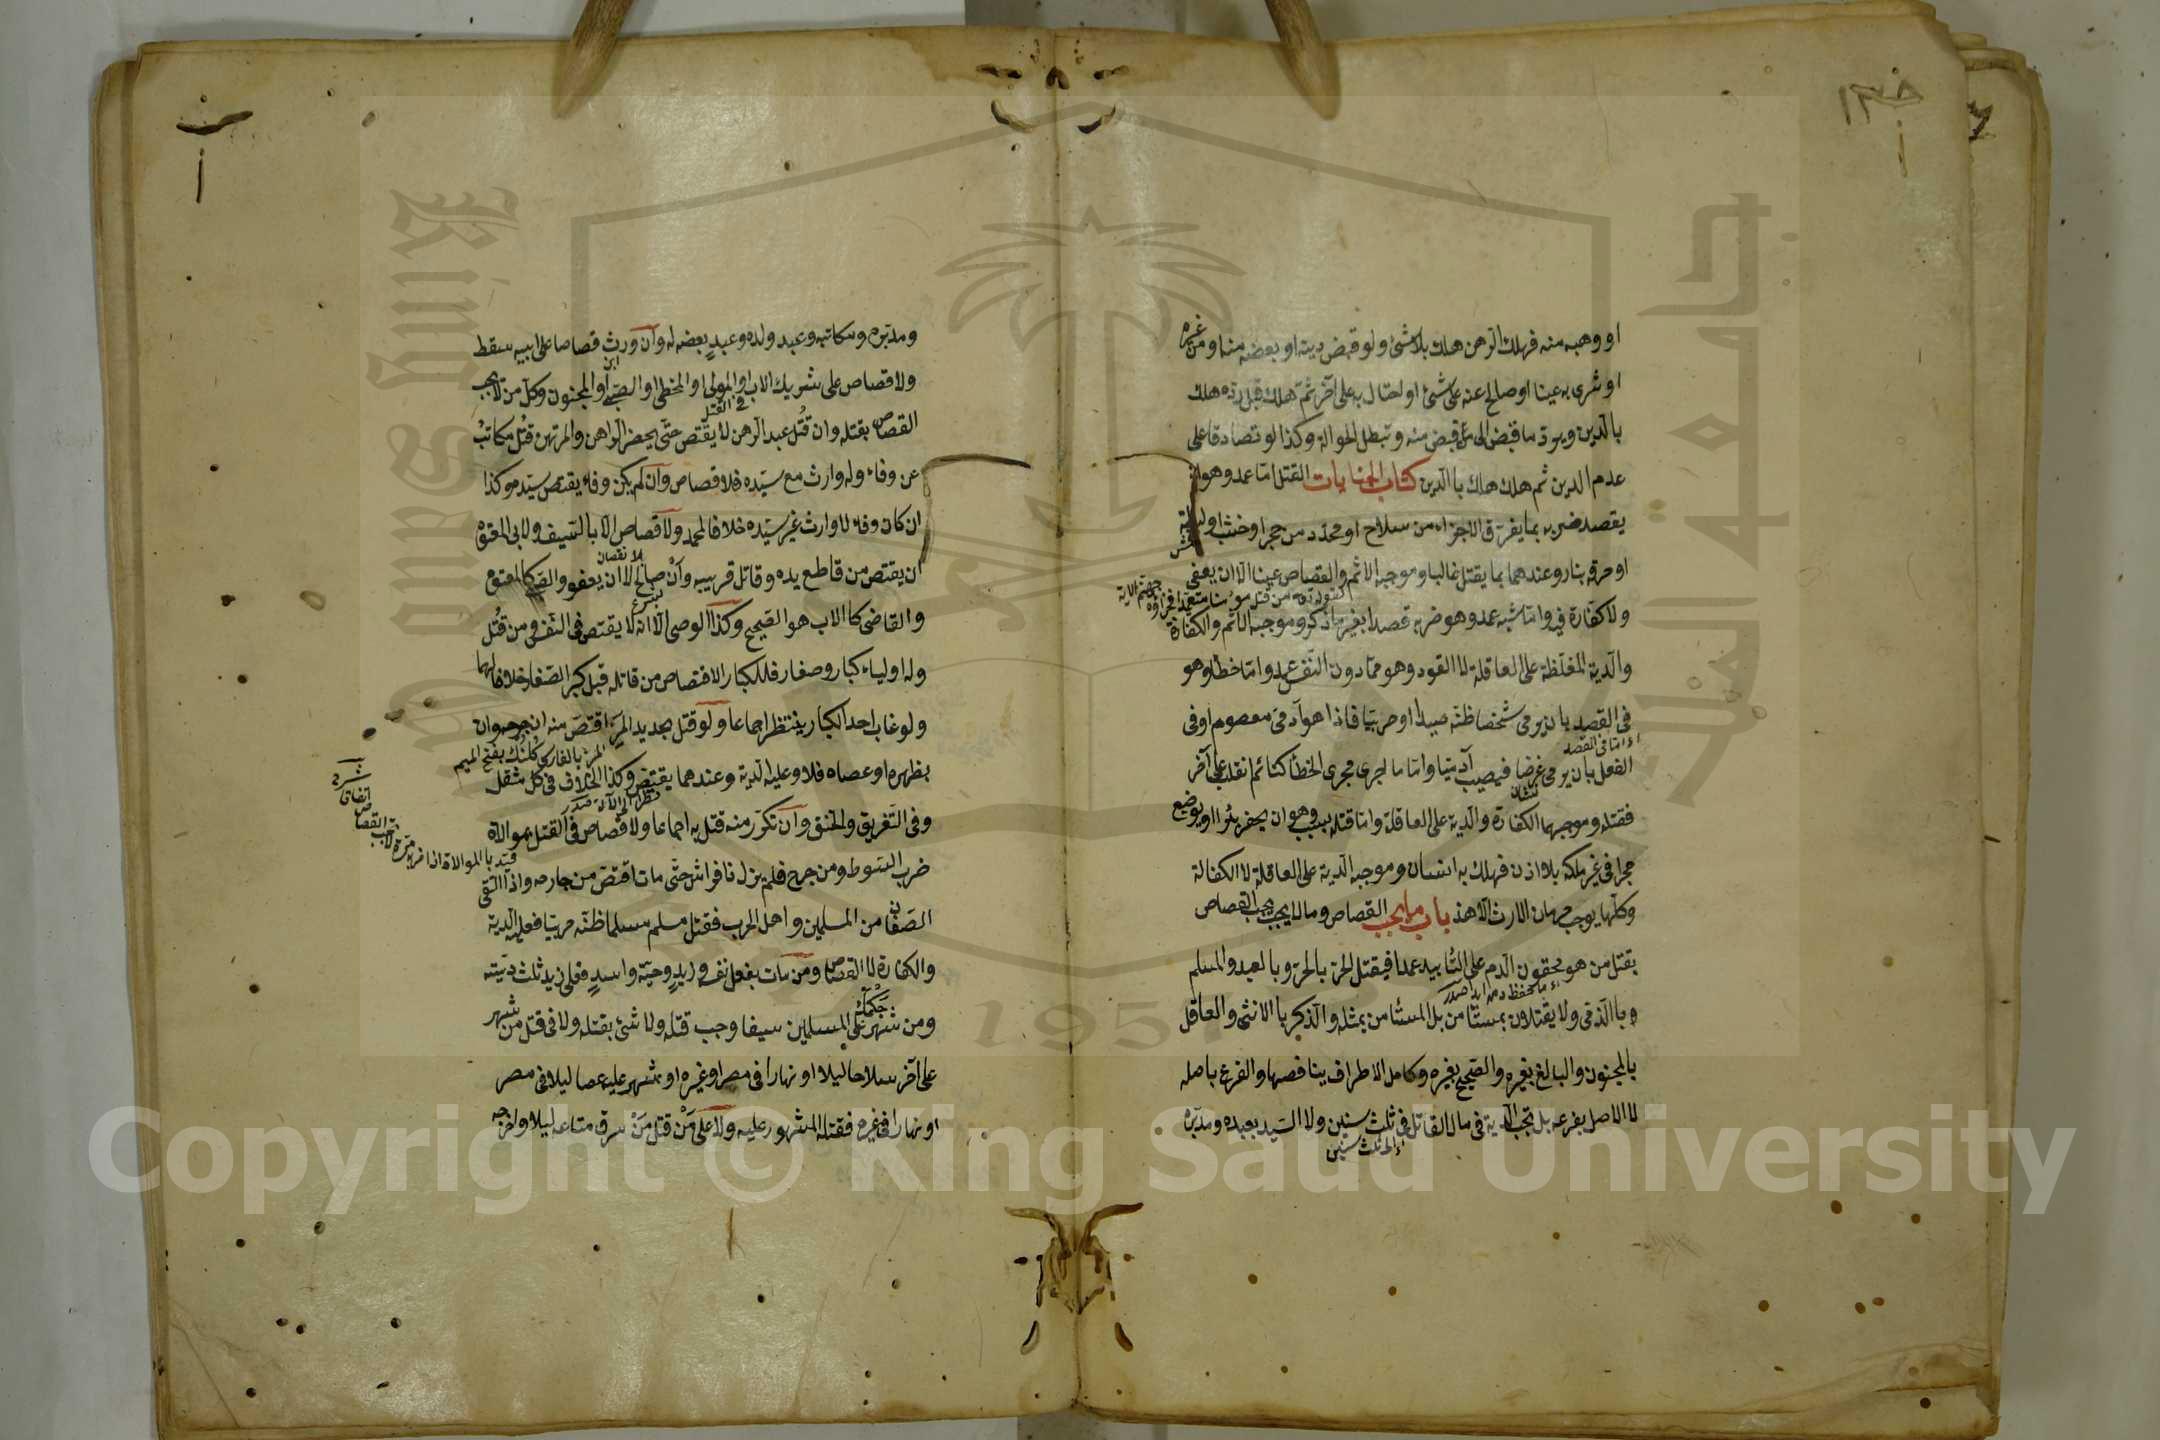 او وهبه منه فهلك الرهن هلك بلا شئ ولو قبض دينه او بعضه منه او من غيره
او شرى به عينا او صالح عنه على شئ او احتال به على آخر ثم هلك قبل رده هلك
بالدين ويرد ما قبض الى من قبض منه وتبطل الحوالة وكذا لو تصادقا على
عدم الدين ثم هلك هلك بالدين كتاب الجنايات القتل اما عمد وهو ان
يقصد ضربه بما يفرق الاجزاء من سلاح او محدد من حجر او خشب او ليطة
او حرقه بنار وعندهما بما يقتل غالبا وموجبه الاثم والقصاص عينا الا ان يعفى
كقوله تعه من قتل مؤمنا متعمدا فجزاؤه جهنم الاية
ولا كفارة فيه واما شبه عمد وهو ضربه قصدا بغير ما ذكر وموجبه الاثم والكفارة
والدية المغلظة على العاقلة لا القود وهو فيما دون النفس عمد واما خطأ وهو
فى القصد بان يرمى شخصا ظنه صيدا او حربيا فاذا هو آدمى معصوم او فى
اى اما فى القصد
الفعل بان يرمى غرضا فيصيب آدميا واما ما اجرى مجرى الخطأ كنائم انقلب على آخر
نشان
فقتله وموجبهما الكفارة والدية على العاقلة واما قتله بسبب وهو ان يحفر بئرا او يوضع
حجرا فى غير ملكه بلا اذن فهلك به انسان وموجبه الدية على العاقلة لا الكفالة
وكلها يوجب حرمان الارث الا هذا باب ما يجب القصاص وما لا يجب يجب القصاص
بقتل من هو محقون الدم على التأبيد عمدا فيقتل الحر بالحر وبالعبد والمسلم
اى ما يحفظ دمه ابدا صدر
وبالذمى ولا يقتلان بمستأمن بل المستأمن بمثله والذكر بالانثى والعاقل
بالمجنون والبالغ بغيره والصحيح بغيره وكامل الاطراف بناقصها والفرع باصله
لا الاصل بفرعه بل تجب الدية فى مال القاتل فى ثلث سنين ولا السيد بعبده ومدبره
اى الى ثلث سنين
ومدبره ومكاتبه وعبد ولده وعبد بعضه له وان ورث قصاصا على ابيه سقط
ولا قصاص على شريك الاب او المولى او المخطئ او الصبى او المجنون وكل من لا يجب
فى القتل
القصاص بقتله وان قتل عبد الرهن لا يقتص حتى يحضر الراهن والمرتهن قتل مكاتب
عن وفاء وله وارث مع سيده فلا قصاص وان لم يكن وفاء يقتص سيده وكذا
ان كان وفاء لا وارث غير سيده خلافا لمحمد ولا قصاص الا بالسيف ولابى المعتوه
ان يقتص من قاطع يده وقاتل قريبه وان صالح لا ان يعفو والصبى كالمعتوه
بلا نقصان
والقاضى كالاب هو الصحيح وكذا الوصى الا انه لا يقتص فى النفس ومن قتل
وله اولياء كبار وصغار فللكبار الاقتصاص من قاتله قبل كبر الصغار خلافا لهما
ولو غاب احد الكبار ينتظر اجماعا ولو قتل بحديد المر اقتص منه ان جرحه وان
المر بالفارسى كلنك بفتح الميم
بظهره او عصاه فلا وعليه الدية وعندهما يقتص وكذا الخلاف فى كل مثقل
وفى التغريق والخنق وان تكرر منه قتل به اجماعا ولا قصاص فى القتل بموالاة
قيد بالموالاة
ضرب السوط ومن جرح فلم يزل ذا فراش حتى مات اقتص من جارحه واذا التقى
الصفان من المسلمين واهل الحرب فقتل مسلم مسلما ظنه حربيا فعليه الدية
والكفارة لا القصاص ومن مات بفعل نفسه وزيد وحية واسد فعلى زيد ثلث ديته
ومن شهر على المسلمين سيفا وجب قتله ولا شئ بقتله ولا فى قتل من شهر
على آخر سلاحا ليلا او نهارا فى مصر او غيره او شهر عليه عصا ليلا فى مصر
او نهارا فى غيره فقتله المشهور عليه ولا على من قتل من سرق متاعه ليلا واخرجه
Copyright © King Saud University
King Saud University
1957